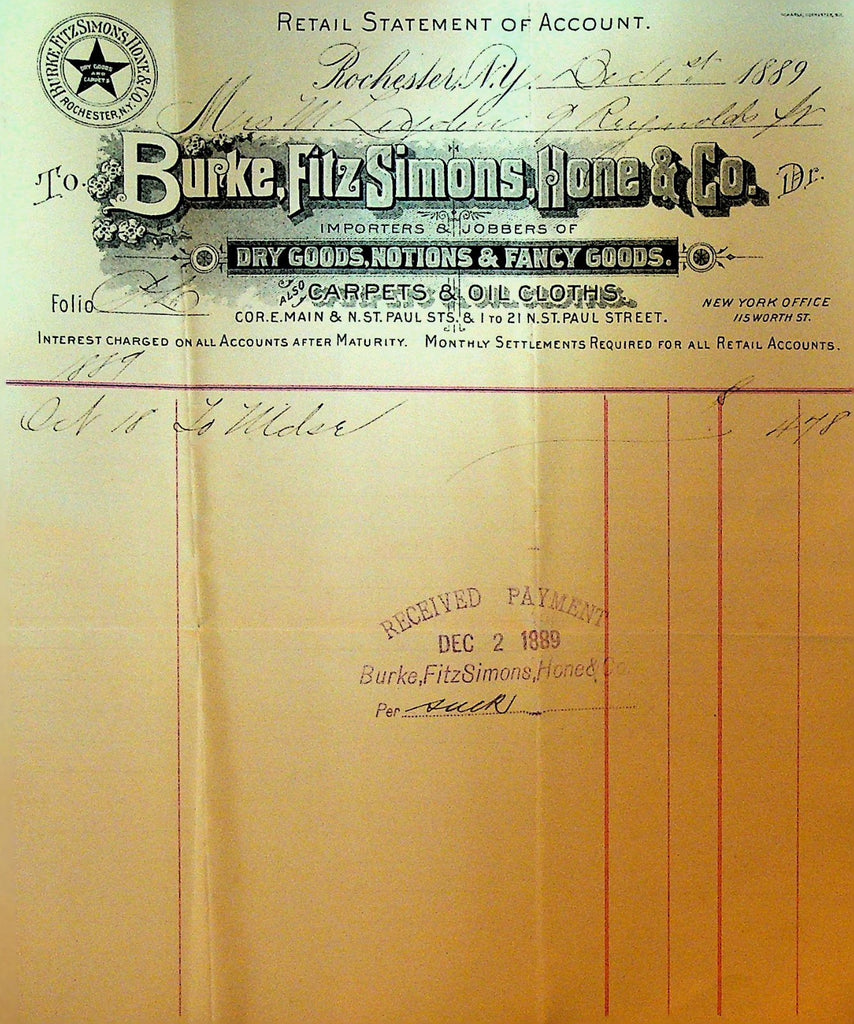 RETAIL STATEMENT OF ACCOUNT.
BURKE, FITZSIMONS, HONE & CO.
DRY GOODS
AND
CARPETS
ROCHESTER, N.Y.
Rochester, N.Y. Dec 1st 1889
Mrs M 9 Reynolds St
To Burke, FitzSimons, Hone & Co. Dr.
IMPORTERS & JOBBERS OF
DRY GOODS, NOTIONS & FANCY GOODS.
ALSO CARPETS & OIL CLOTHS.
Folio
NEW YORK OFFICE
115 WORTH ST.
COR. E. MAIN & N. ST. PAUL STS. & 1 TO 21 N. ST. PAUL STREET.
INTEREST CHARGED ON ALL ACCOUNTS AFTER MATURITY. MONTHLY SETTLEMENTS REQUIRED FOR ALL RETAIL ACCOUNTS.
1889
Oct 18 To Mdse $ 4 78
RECEIVED PAYMENT
DEC 2 1889
Burke, FitzSimons, Hone & Co.
Per